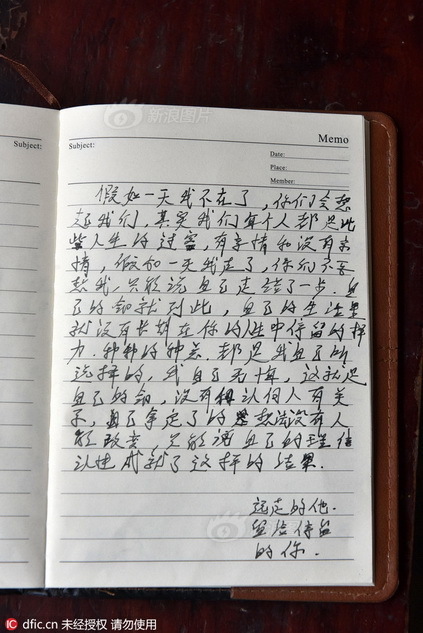 新浪图片
Subject:
Subject:
Memo
Date:
Place:
Member:
假如一天我不在了，你们会想
起我们，其实我们每个人都是此
些人生的过客，有亲情和没有亲
情，假如一天我走了，你们不要
愁我，只能说自己走错了一步．自
己的命就到此，自己的生
就没有长期在你的人生中停留的择
力．种种的种类．都是我自己所
选择的，我自己无悔，这就是
自己的命，没有和认何人有关
系，自己争定了的想法没有人
能改变，只能语自己的理
认也成就了这择的结果．
远走的他．
留给停留
的你．
dfic.cn 未经授权 请勿使用